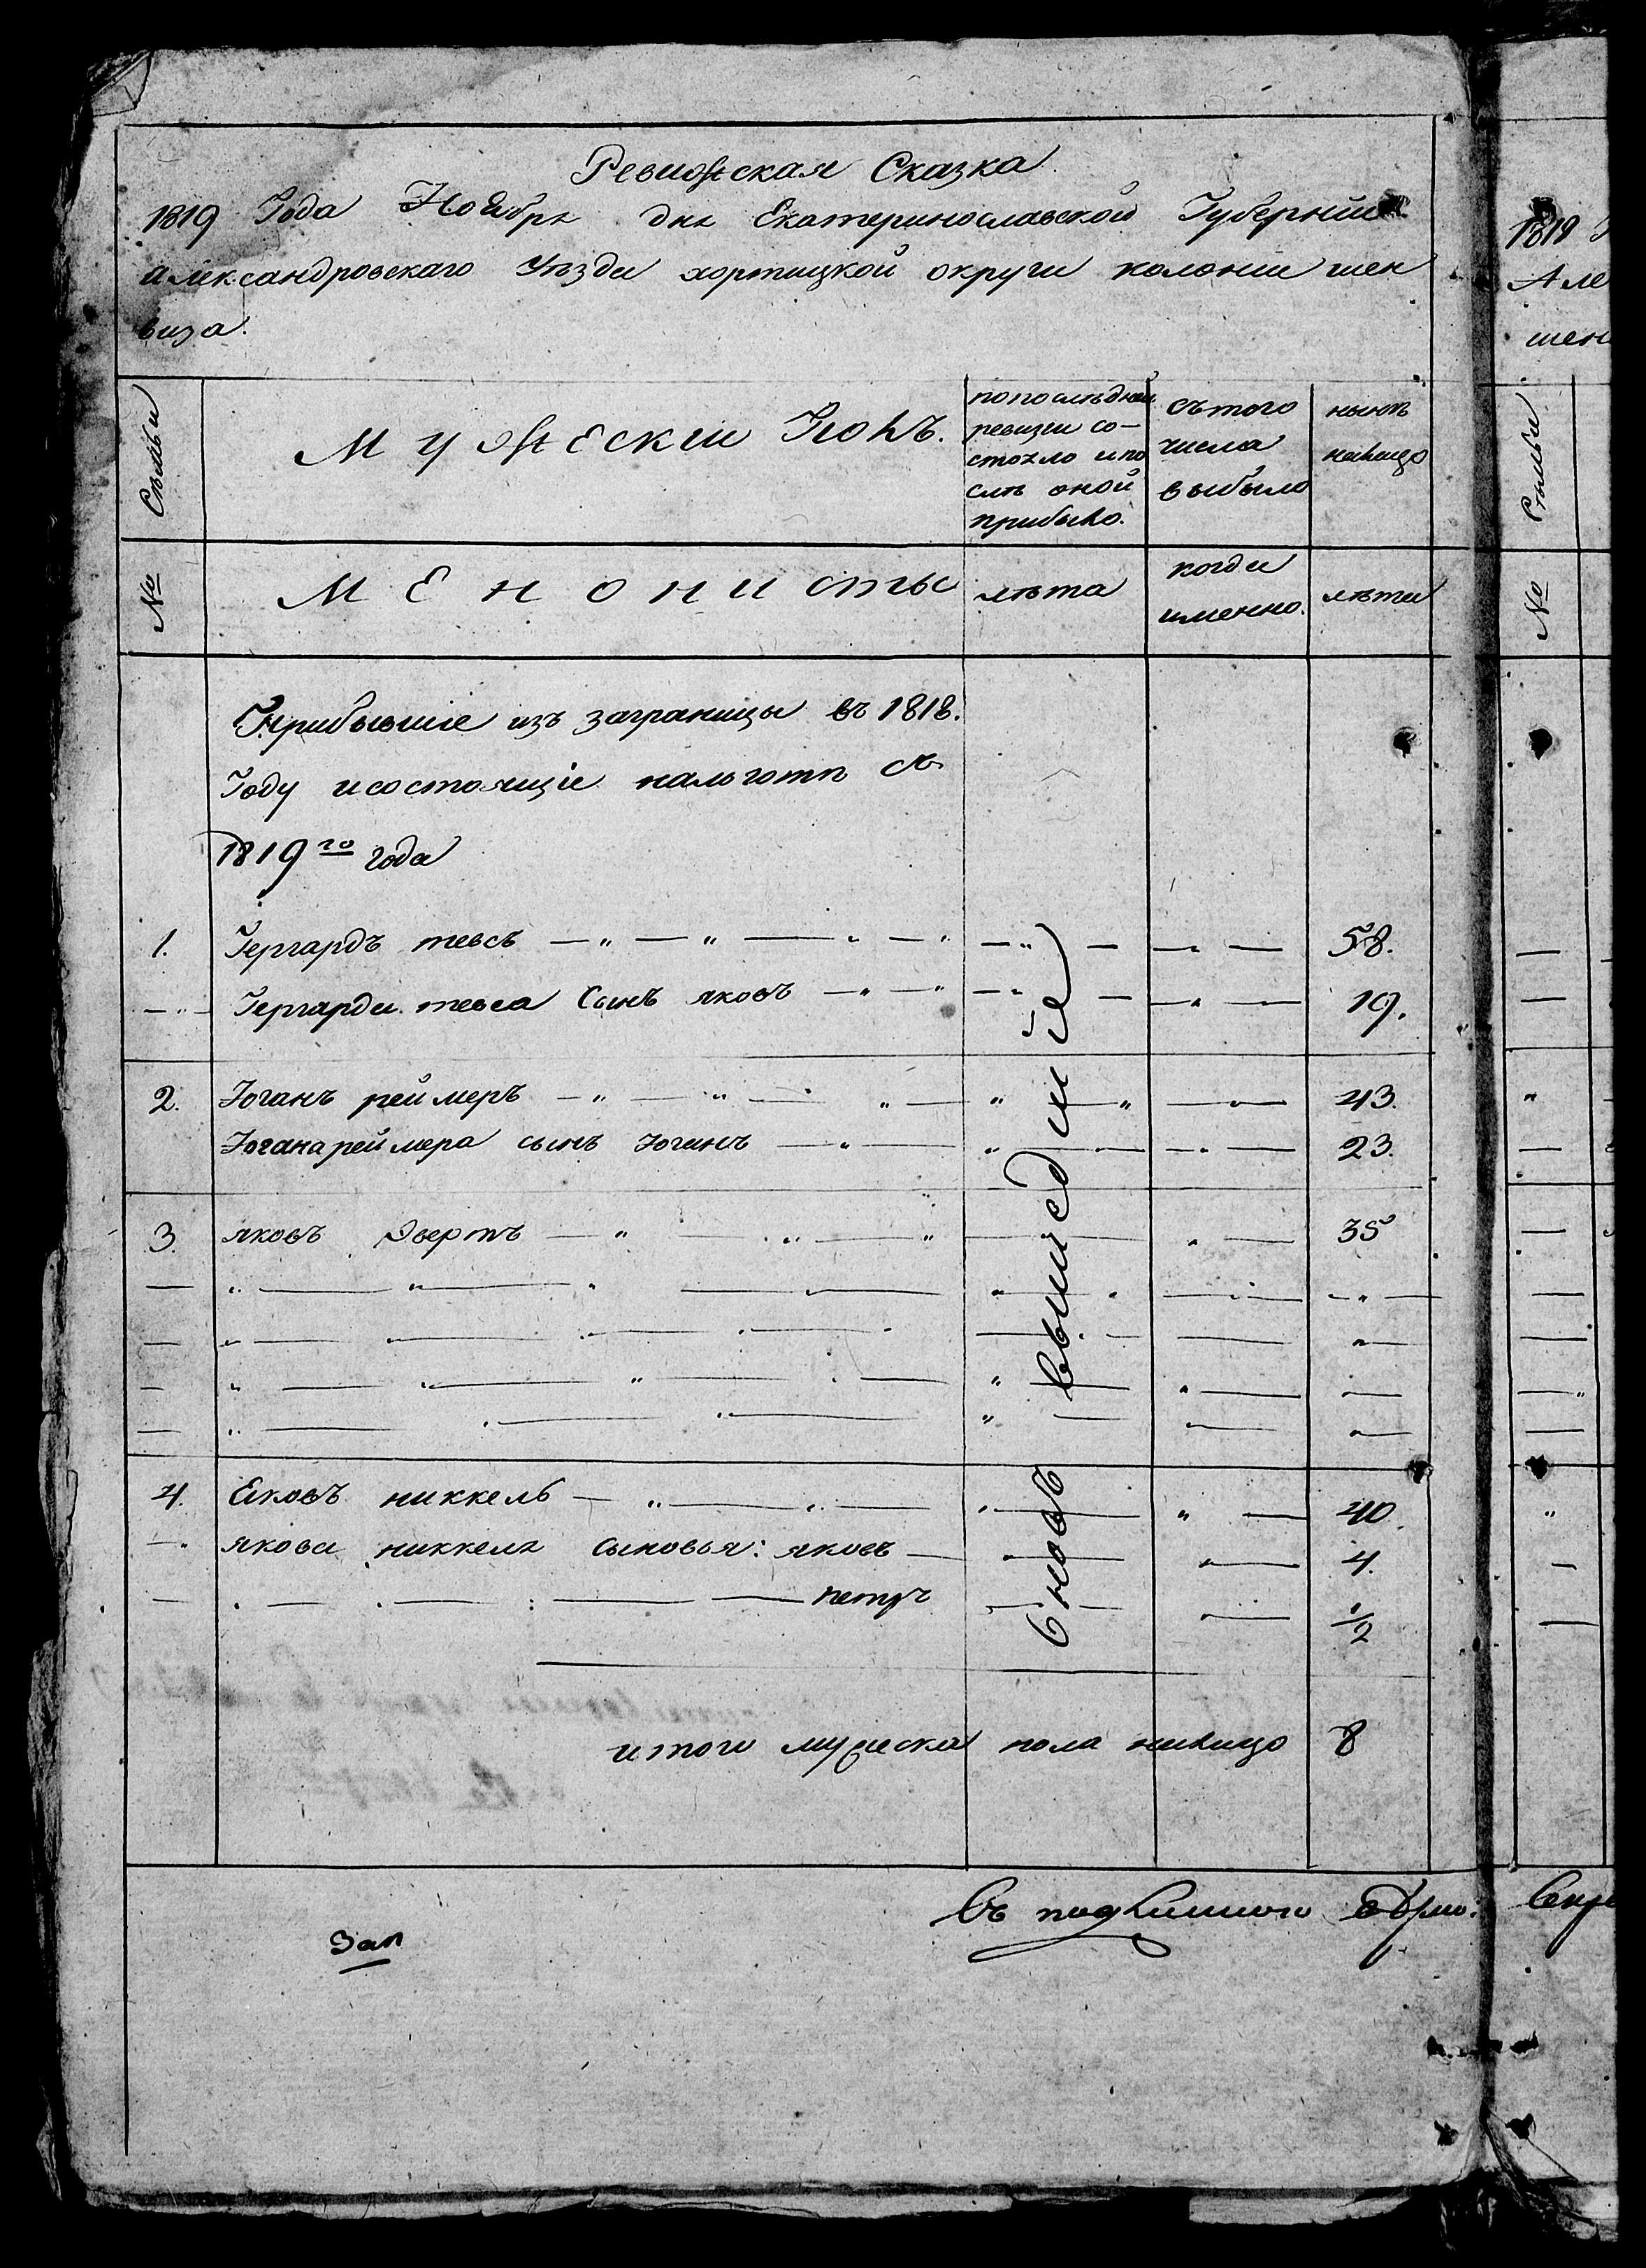 Ревижская Сказка.
1819 Года Ноября дня Екатеринославской Губернии
александровскаго Уѣзда хортицкой округи колонии шен
виза.
Семьи
Мужескiй Полъ.
по последней
ревизии со-
стояло и по
слѣ оной
прибыло.
съ того
числа
выбыло
нынѣ
налицо
№
Менонисты
лѣта
когда
именно.
лѣта
Прибывшiе изъ заграницы въ 1818.
Году и состоящiе нальготѣ съ
1819го года
1. Гергардъ тевсъ — „ — „ — „ — „ — 58.
— „ — Гергарда тевса Сынъ яковъ — „ — „ — 19.
2. Iоганъ реймеръ — „ — „ — „ — 43.
Iогана реймера сынъ Iоганъ — „ — 23.
3. яковъ Эвертъ — „ — „ — „ — 35
4. Яковъ никкель — „ — „ — 40.
— „ якова никкеля Сыновья: яковъ — 4.
— петръ 1/2
вновь вышедшiе
итого мужеска пола налицо 8
Зап
Съ подлиннымъ
1819
Але
шен
Семьи
№